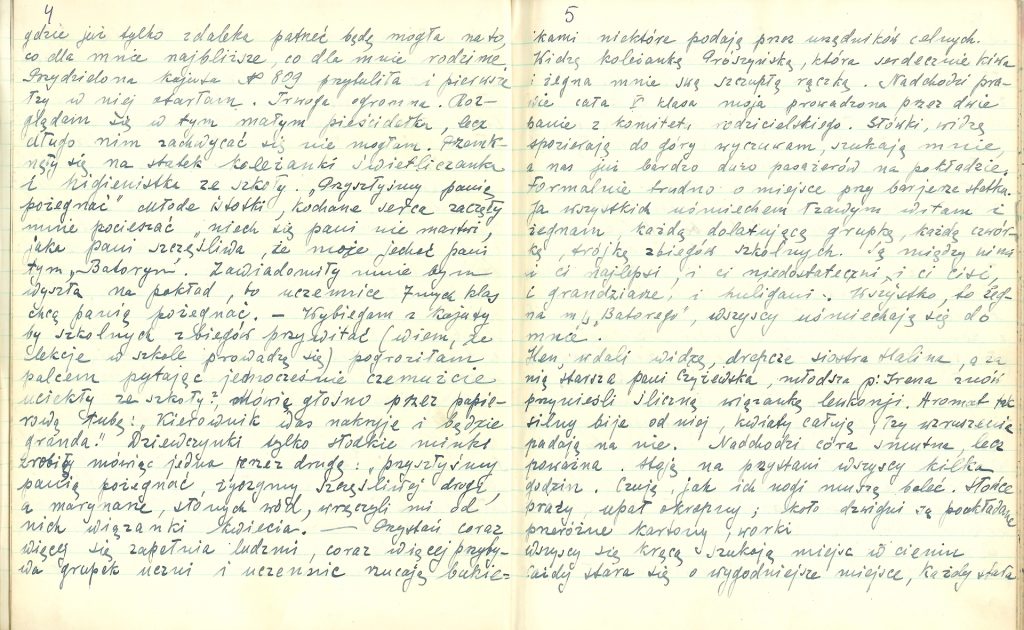 4
gdzie już tylko zdaleka patrzeć będę mogła na to,
co dla mnie najbliższe, co dla mnie rodzime.
Przydzielona kajuta № 809 przytuliła i pierwsze
łzy w niej otarłam. Trwoga ogromna. Roz-
glądam się w tym małym pieścidełku, lecz
długo nim zachwycać się nie mogłam. Przemk-
nęły się na statek koleżanki świetliczanka
i higienistka ze szkoły. „Przyszłyśmy panią
pożegnać" młode istotki, kochane serca zaczęły
mnie pocieszać „niech się pani nie martwi,
jaka pani szczęśliwa, że może jechać pani
tym „Batorym". Zawiadomiły mnie bym
wyszła na pokład, to uczennice 7mych klas
chcą panią pożegnać. — Wybiegam z kajuty
by szkolnych zbiegów przywitać (wiem, że
lekcje w szkole prowadzą się) pogroziłam
palcem pytając jednocześnie czemużcie
uciekły ze szkoły?, mówię głośno przez papie-
rową tubę: „Kierownik was nakryje i będzie
granda." Dziewczynki tylko słodkie minki
zrobiły mówiąc jedna przez drugą: „przyszłyśmy
panią pożegnać, życzymy szczęśliwej drogi,
a marynarze, słonych wód, wręczyli mi od
nich wiązanki kwiecia. — Przystań coraz
więcej się zapełnia ludźmi, coraz więcej przyby-
wa grupek uczni i uczennic rzucają bukie-
5
ikami niektóre podają przez urzędników celnych.
Widzę koleżankę Prószyńską, która serdecznie kiwa
i żegna mnie swą szczupłą rączką. Nadchodzi pra-
wie cała V klasa moja prowadzona przez dwie
panie z komitetu rodzicielskiego. Słówki, widzę
spozierają do góry wyczuwam, szukają mnie,
a nas już bardzo dużo pasażerów na pokładzie.
Formalnie trudno o miejsce przy barjerze statku.
Ja wszystkich uśmiechem łzawym witam i
żegnam, każdą dolatującą grupkę, każdą czwór-
kę, trójkę zbiegów szkolnych. Są między nimi
i ci najlepsi, i ci niedostateczni, i ci cisi,
i grandziarze, i huligani. Wszystko, to żeg-
na m/ „Batorego", wszyscy uśmiechają się do
mnie.
Hen, w dali widzę, drepcze siostra Halina, a za
nią starsza pani Czyżewska, młodsza p. Irena znów
przynieśli śliczną wiązankę lewkonji. Aromat tak
silny bije od niej, kwiaty całuję, łzy wzruszenia
padają na nie. Nadchodzi córa smutna, lecz
poważna. Stają na przystani wszyscy kilka
godzin. Czuję, jak ich nogi muszą boleć. Słońce
praży, upał okropny; koło dźwigni są poukładane
przeróżne kartony, worki
wszyscy się kręcą szukają miejsc w cieniu
każdy stara się o wygodniejsze miejsce, każdy stara